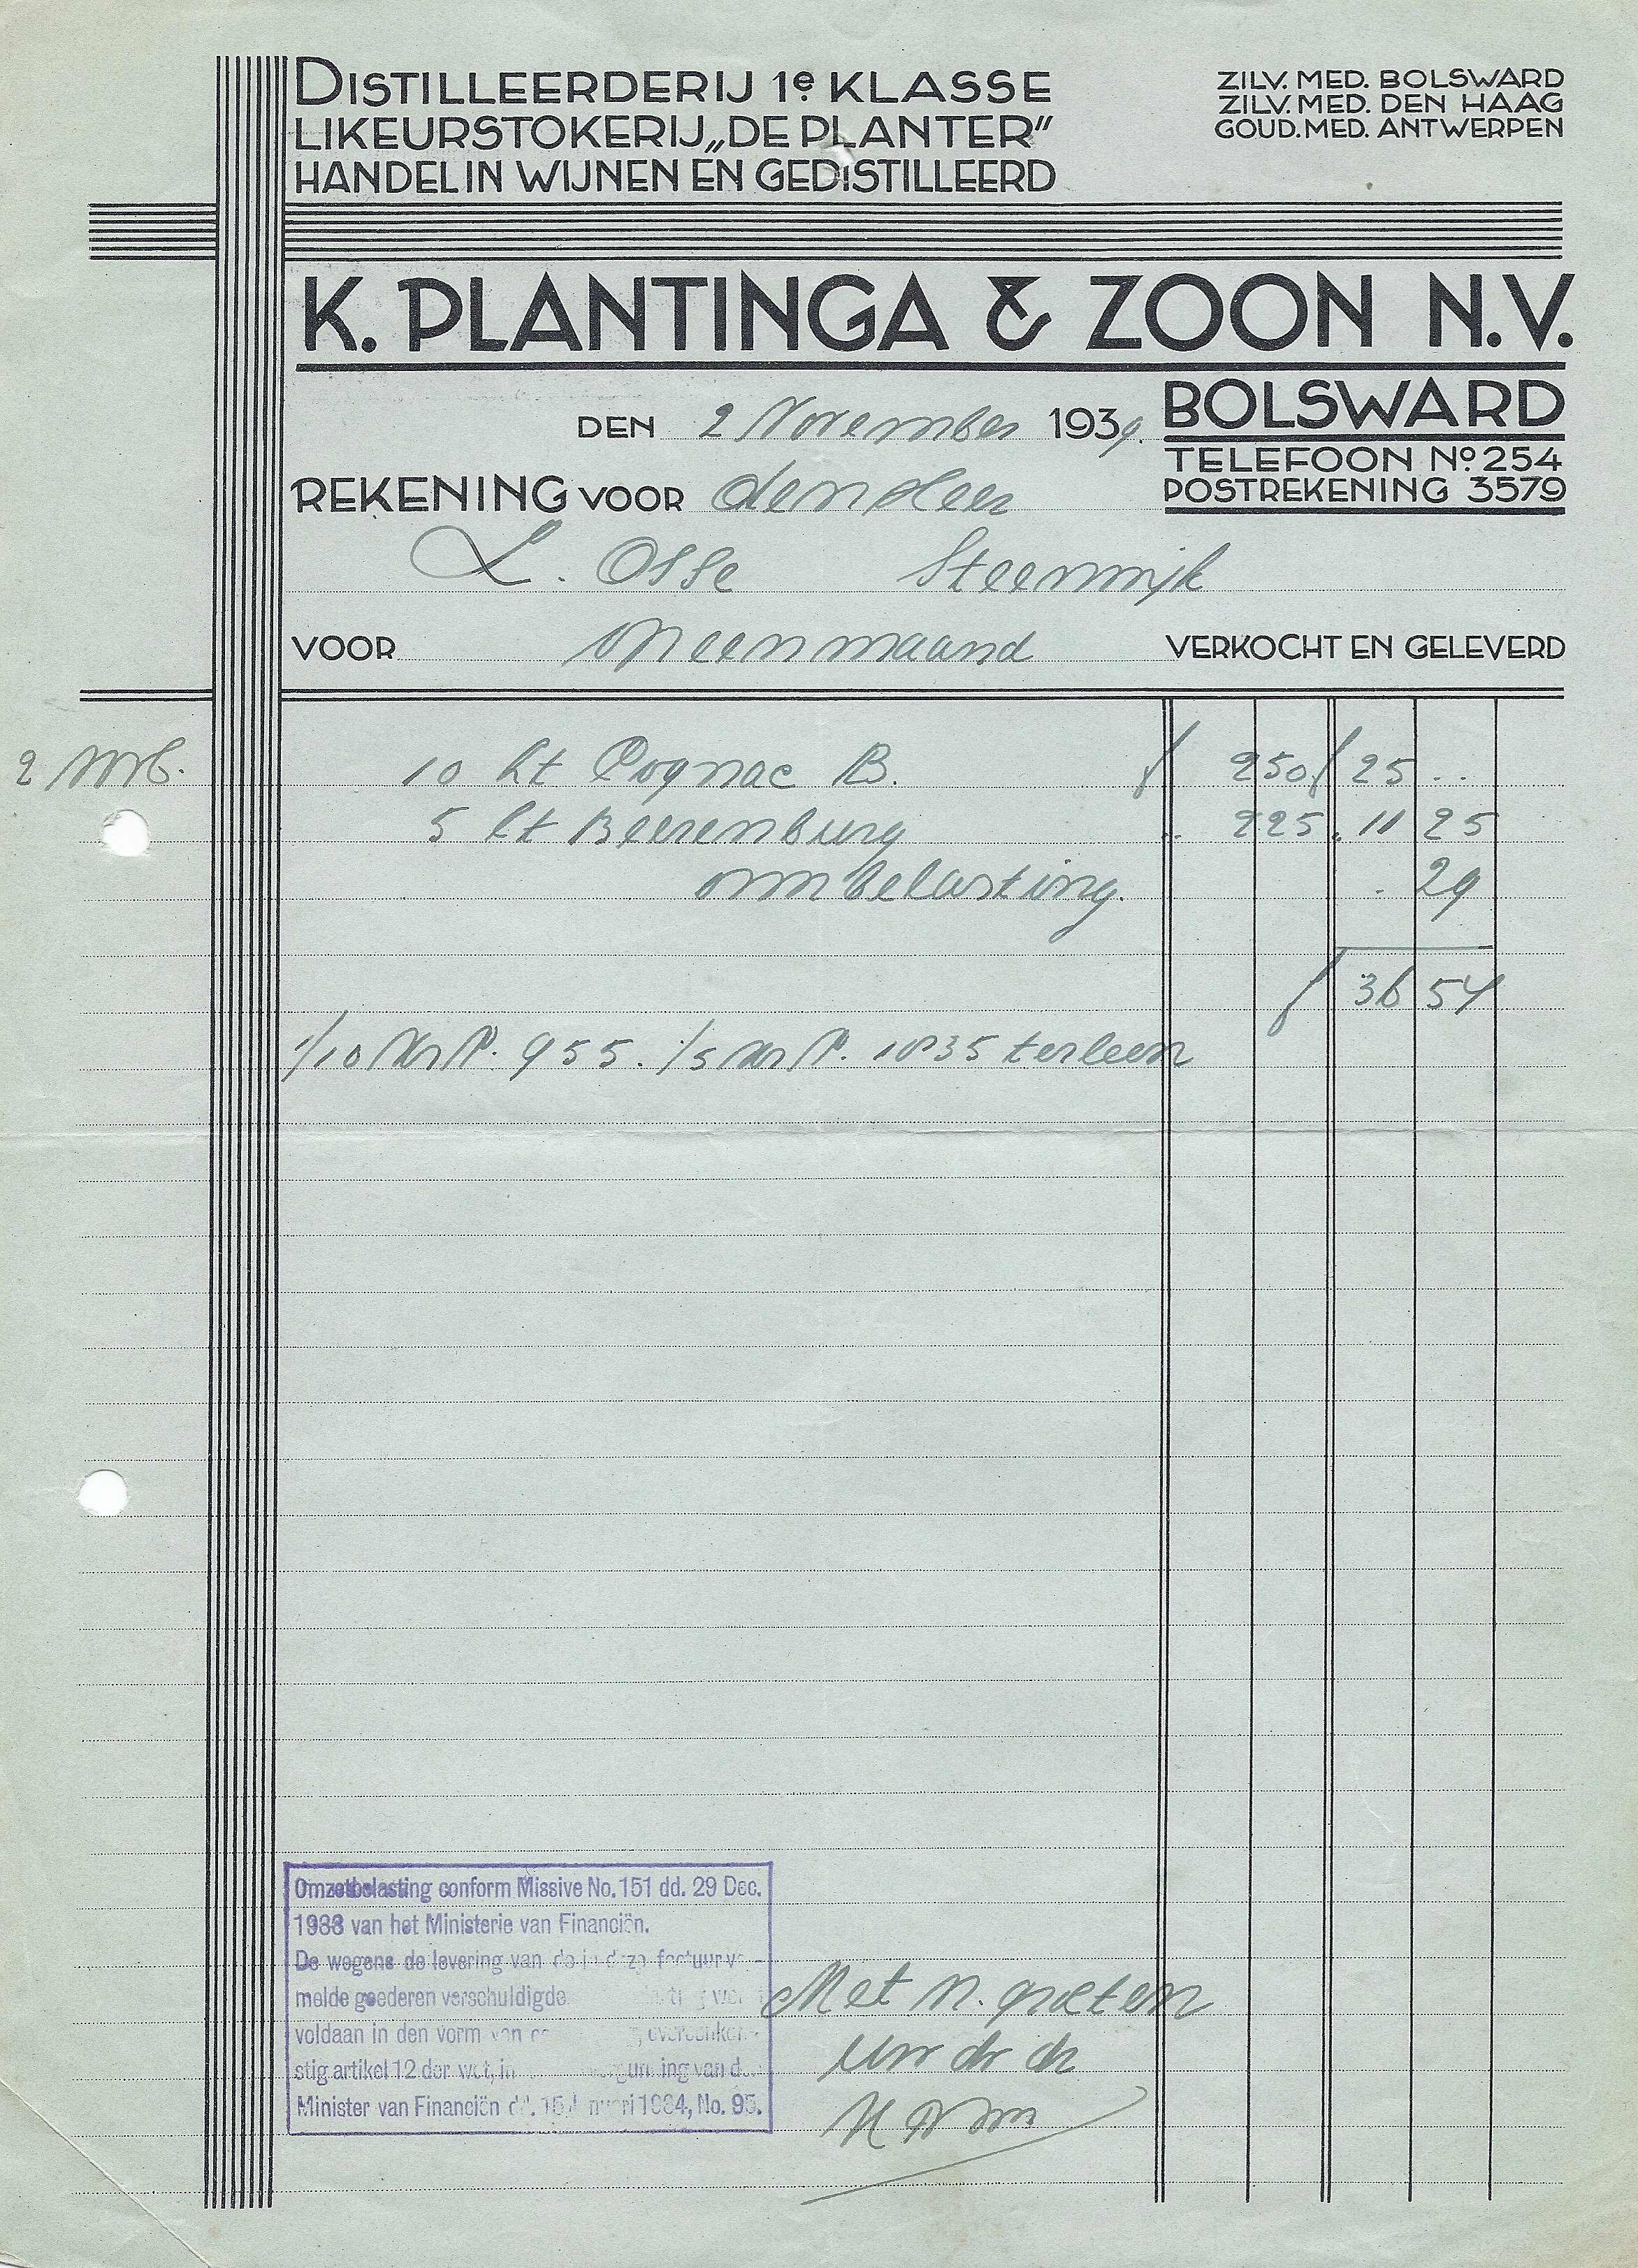 DISTILLEERDERIJ 1e KLASSE
LIKEURSTOKERIJ „DE PLANTER”
HANDEL IN WIJNEN EN GEDISTILLEERD
ZILV. MED. BOLSWARD
ZILV. MED. DEN HAAG
GOUD. MED. ANTWERPEN
K. PLANTINGA & ZOON N.V.
BOLSWARD
TELEFOON No. 254
POSTREKENING 3579
DEN 2 November 1939.
REKENING VOOR den Heer
L. Osse Steenwijk
VOOR een maand VERKOCHT EN GELEVERD
10 Lt Cognac B. f 250 f 25 ..
5 Lt Beerenburg .. 225 .. 11 25
ombelasting. . 29
f 36 54
1/10 955. 1/5 1035 ter leen
Omzetbelasting conform Missive No. 151 dd. 29 Dec.
1933 van het Ministerie van Financiën.
De wegens de levering van de in deze factuur
melde goederen verschuldigde
voldaan in den vorm van
stig artikel 12 der wet, in
Minister van Financiën dd. 15 Januari 1934, No. 95.
Met n. groeten
Uw dv dr